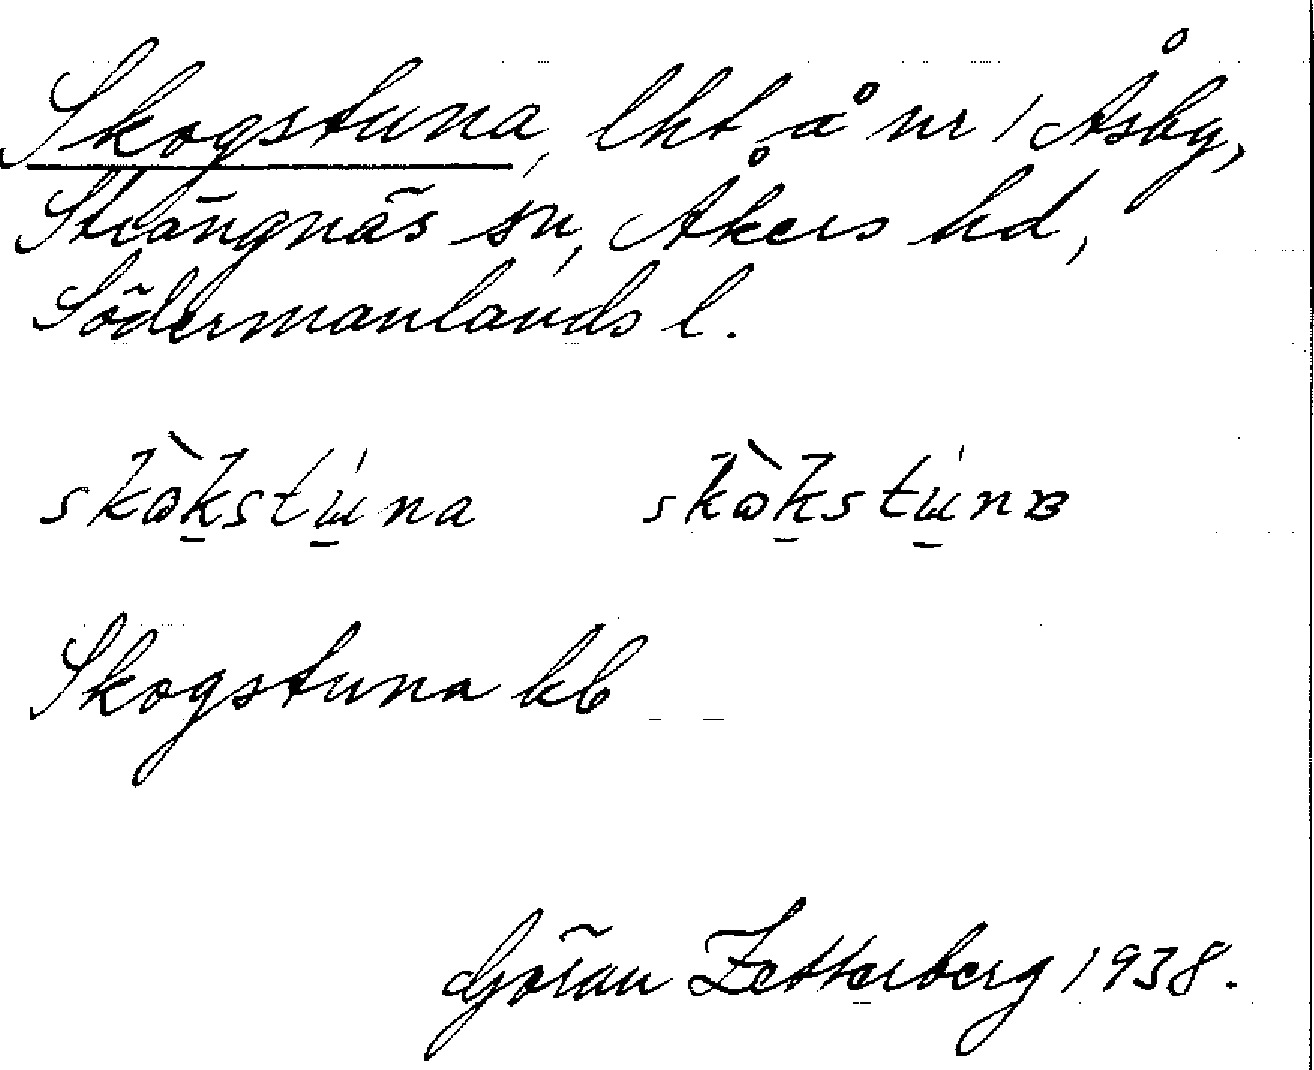 Skogstuna, lht å nr 1 Åsby,
Strängnäs sn, Åkers hd,
Södermanlands l.
skɷ̀ks̠tɯ̠́na skɷ̀k̠stɯ̠́nɞ
Skogstuna kb
Göran Zetterberg 1938.